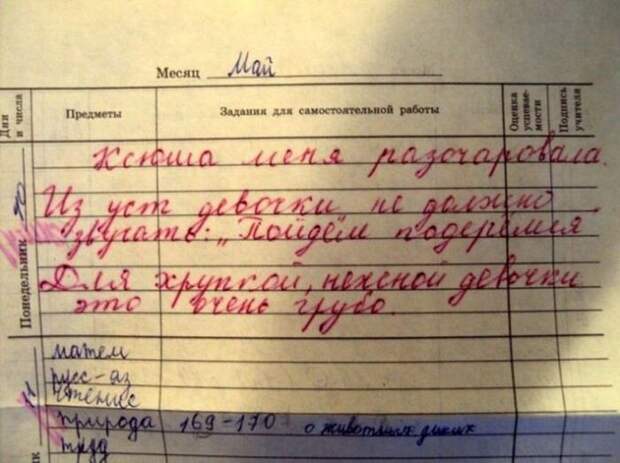 Месяц Май
Дни и числа Предметы Задания для самостоятельной работы Оценка успевае-мости Подпись учителя
Ксюша меня разочаровала.
Из уст девочки не должно
звучать: „Пойдём подерёмся
Для хрупкой, нежной девочки
это очень грубо.
Понедельник 10
11
матем
русс-яз
чтение
природа 169-170 о животных диких
труд